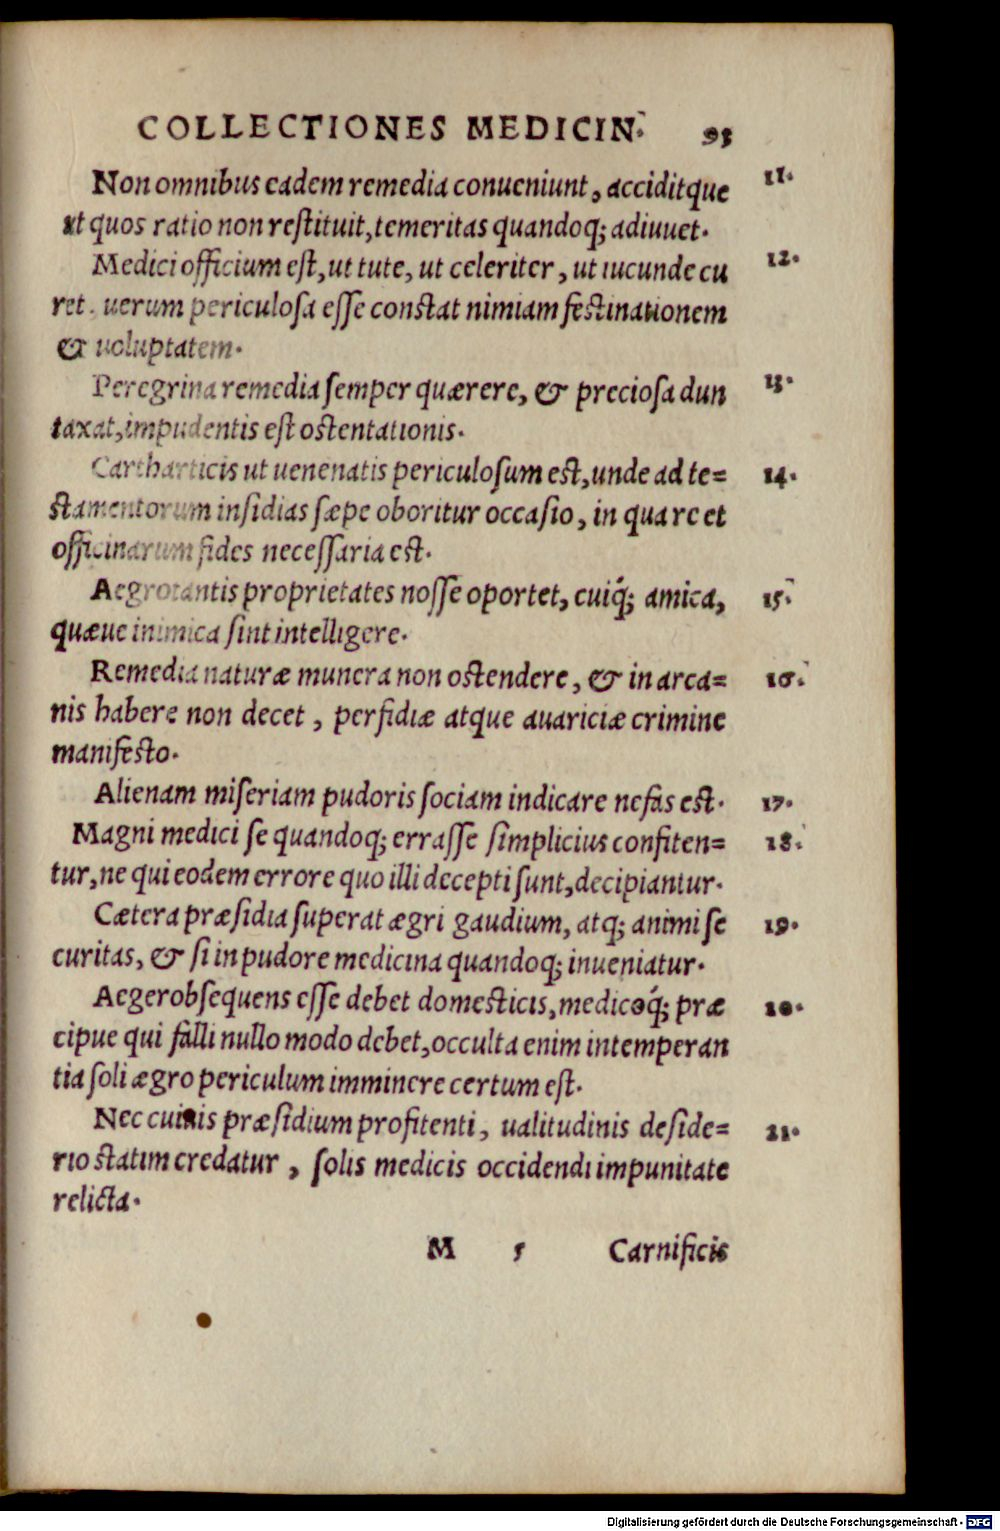 COLLECTIONES MEDICIN. 93
Non omnibus eadem remedia conueniunt, acciditque 11.
ut quos ratio non reſtituit, temeritas quandoq; adiuuet.
Medici officium eſt, ut tute, ut celeriter, ut iucunde cu 12.
ret. uerum periculoſa eſſe conſtat nimiam feſtinationem
& uoluptatem.
Peregrina remedia ſemper quærere, & precioſa dun 13.
taxat, impudentis eſt oſtentationis.
Cartharticis ut uenenatis periculoſum eſt, unde ad te= 14.
ſtamentorum inſidias ſæpe oboritur occaſio, in qua re et
officinarum fides neceſſaria eſt.
Aegrotantis proprietates noſſe oportet, cuiq́; amica, 15.
quæue inimica ſint intelligere.
Remedia naturæ munera non oſtendere, & in arca= 16.
nis habere non decet, perfidiæ atque auariciæ crimine
manifeſto.
Alienam miſeriam pudoris ſociam indicare nefas eſt. 17.
Magni medici ſe quandoq; erraſſe ſimplicius confiten= 18.
tur, ne qui eodem errore quo illi decepti ſunt, decipiantur.
Cætera præſidia ſuperat ægri gaudium, atq; animi ſe 19.
curitas, & ſi in pudore medicina quandoq; inueniatur.
Aeger obſequens eſſe debet domeſticis, medicoq́; præ 20.
cipue qui falli nullo modo debet, occulta enim intemperan
tia ſoli ægro periculum imminere certum eſt.
Nec cuiuis præſidium profitenti, ualitudinis deſide= 21.
rio ſtatim credatur, ſolis medicis occidendi impunitate
relicta.
M 5 Carnificis
Digitalisierung gefördert durch die Deutsche Forschungsgemeinschaft - DFG